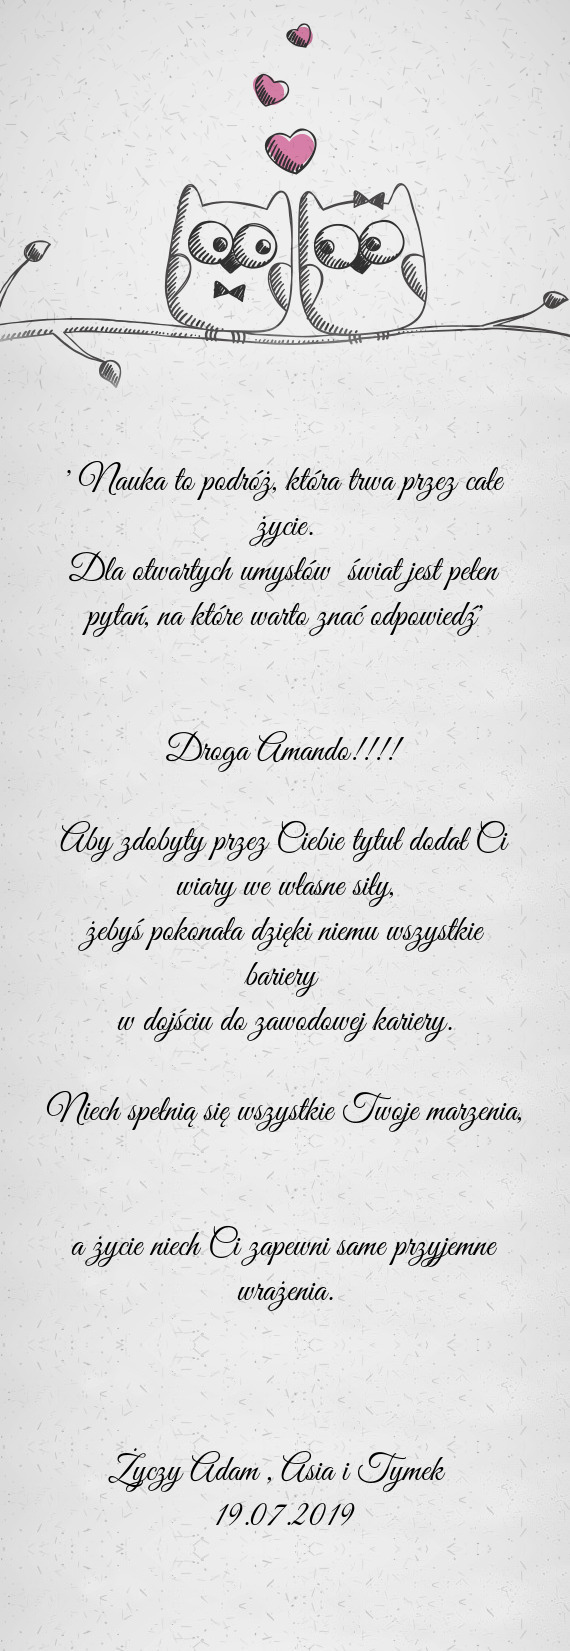 ’ Nauka to podróż, która trwa przez całe
życie.
Dla otwartych umysłów świat jest pełen
pytań, na które warto znać odpowiedź’
Droga Amando!!!!
Aby zdobyty przez Ciebie tytuł dodał Ci
wiary we własne siły,
żebyś pokonała dzięki niemu wszystkie
bariery
w dojściu do zawodowej kariery.
Niech spełnią się wszystkie Twoje marzenia,
a życie niech Ci zapewni same przyjemne
wrażenia.
Życzy Adam , Asia i Tymek
19.07.2019